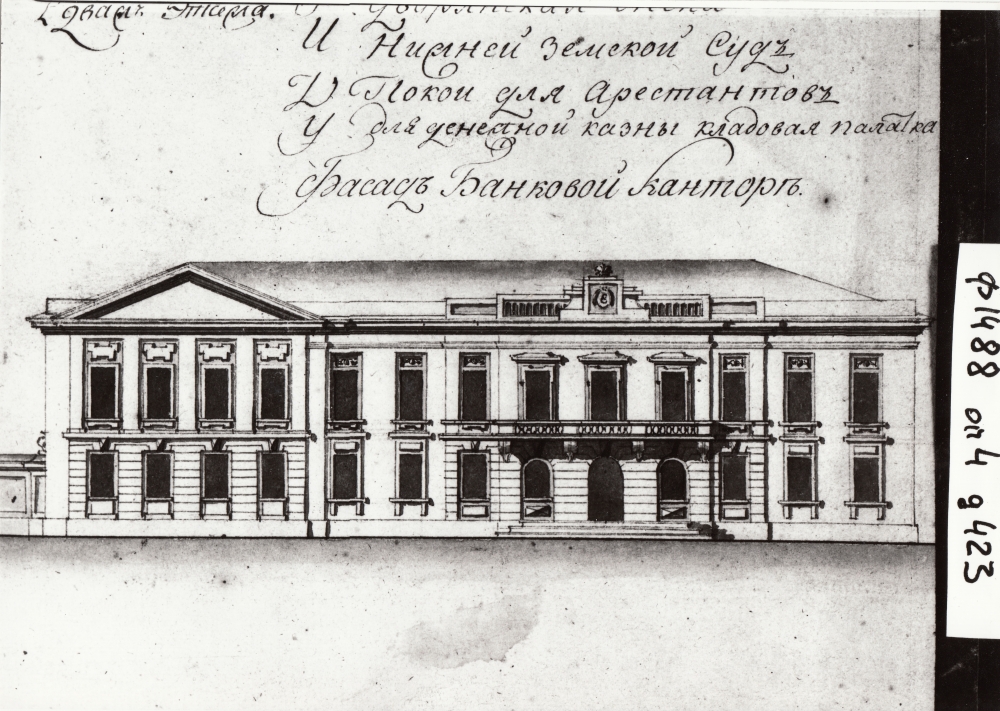 двамъ Этжема.
Дворянская опека
И Нижней Земской Судъ
Покои для Арестантовъ
У для денежной казны кладовая палатка
Фасадъ Банковой Канторъ.
ф 1488 оп 4 д 423